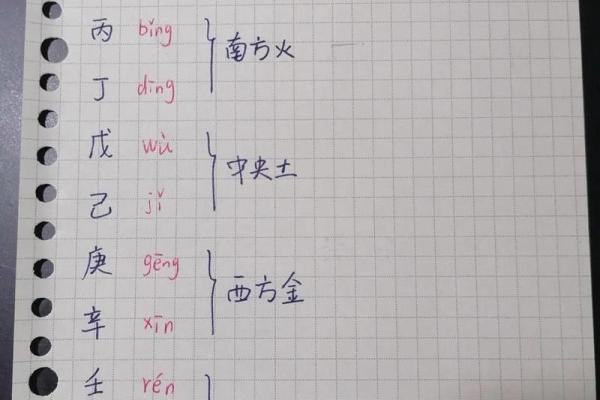 丙 bǐng
南方火
丁 dīng
戊 wù
中央土
己 jǐ
庚 gēng
西方金
辛 xīn
壬 rén